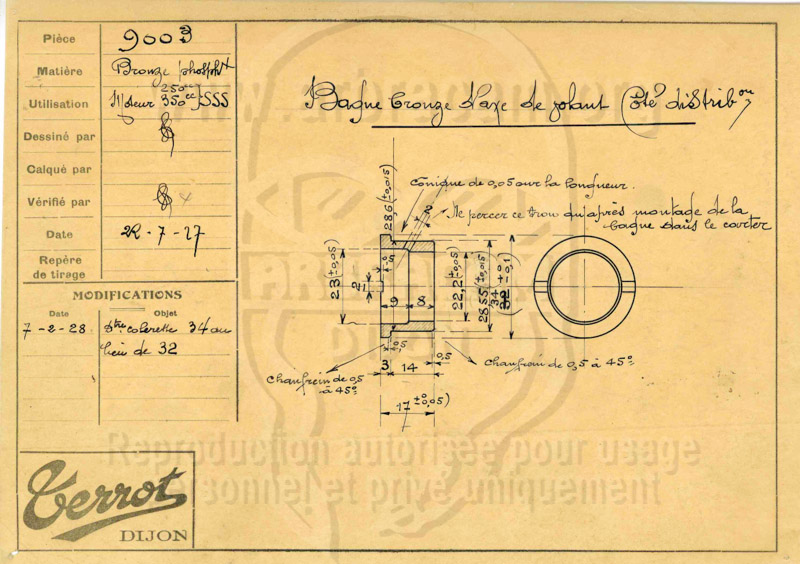 Pièce 9003
Matière Bronze phosph^t
Utilisation Moteur 250cc 350cc SSS
Dessiné par
Calqué par
Vérifié par
Date 22-7-27
Repère
de tirage
MODIFICATIONS
Date Objet
7-2-28 D^tre colerette 34 au
lieu de 32
Terrot
DIJON
Bague bronze d'axe de volant Côté distrib^on
cônique de 0,05 sur la longueur.
Ne percer ce trou qu'après montage de la
bague dans le carter
28,6 (±0,015)
2
23 (±0,05)
2
0,5
9
8
22,2 (±0,05)
28,55 (±0,015)
34
32 ±0 -0,1
0,5
0,5
3
14
17 ±0 -0,05)
chanfrein de 0,5
à 45°
chanfrein de 0,5 à 45°
Reproduction autorisée pour usage
personnel et privé uniquement